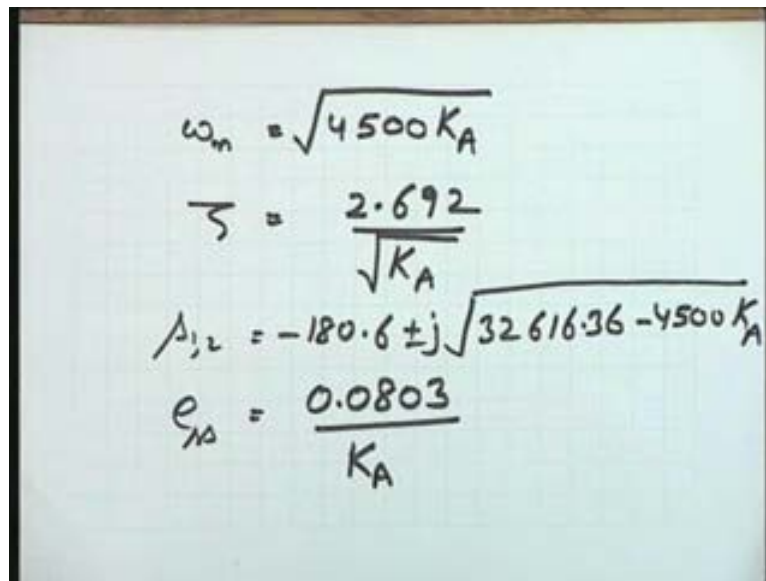 ωn = √4500KA
ζ = 2.692 / √KA
s1,2 = -180.6 ± j√32616.36 - 4500KA
ess = 0.0803 / KA